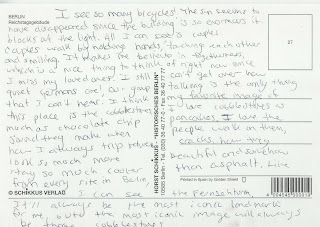 BERLIN
Reichstagsgebäude
I see so many bicycles! The sun seems to
have disappeared since the building is so enormous it
blocks out the light. All I can see is couples
Couples walk by holding hands, touching each other
and smiling. It makes me believe in togetherness,
which is a nice thing to think of right now since
I miss my loved ones. I still can't get over how
quiet Germans are! Our group talking is the only thing
that I can hear. I think my favorite image of
this place is the cobblestones. I love cobblestones
much as chocolate chip pancakes. I love the
sound they make when people walk on them,
how I always trip over cracks, how they
look so much more beautiful and
stay so much cooler than asphalt. Like
from every site in Berlin, I can see the Fernsehturm
It'll always be the most iconic landmark
for me but the most iconic image will always
be those cobblestones!
27
HORST SCHIKKUS · "HISTORISCHES BERLIN"
© SCHIKKUS VERLAG
Printed in Spain by Golden Street